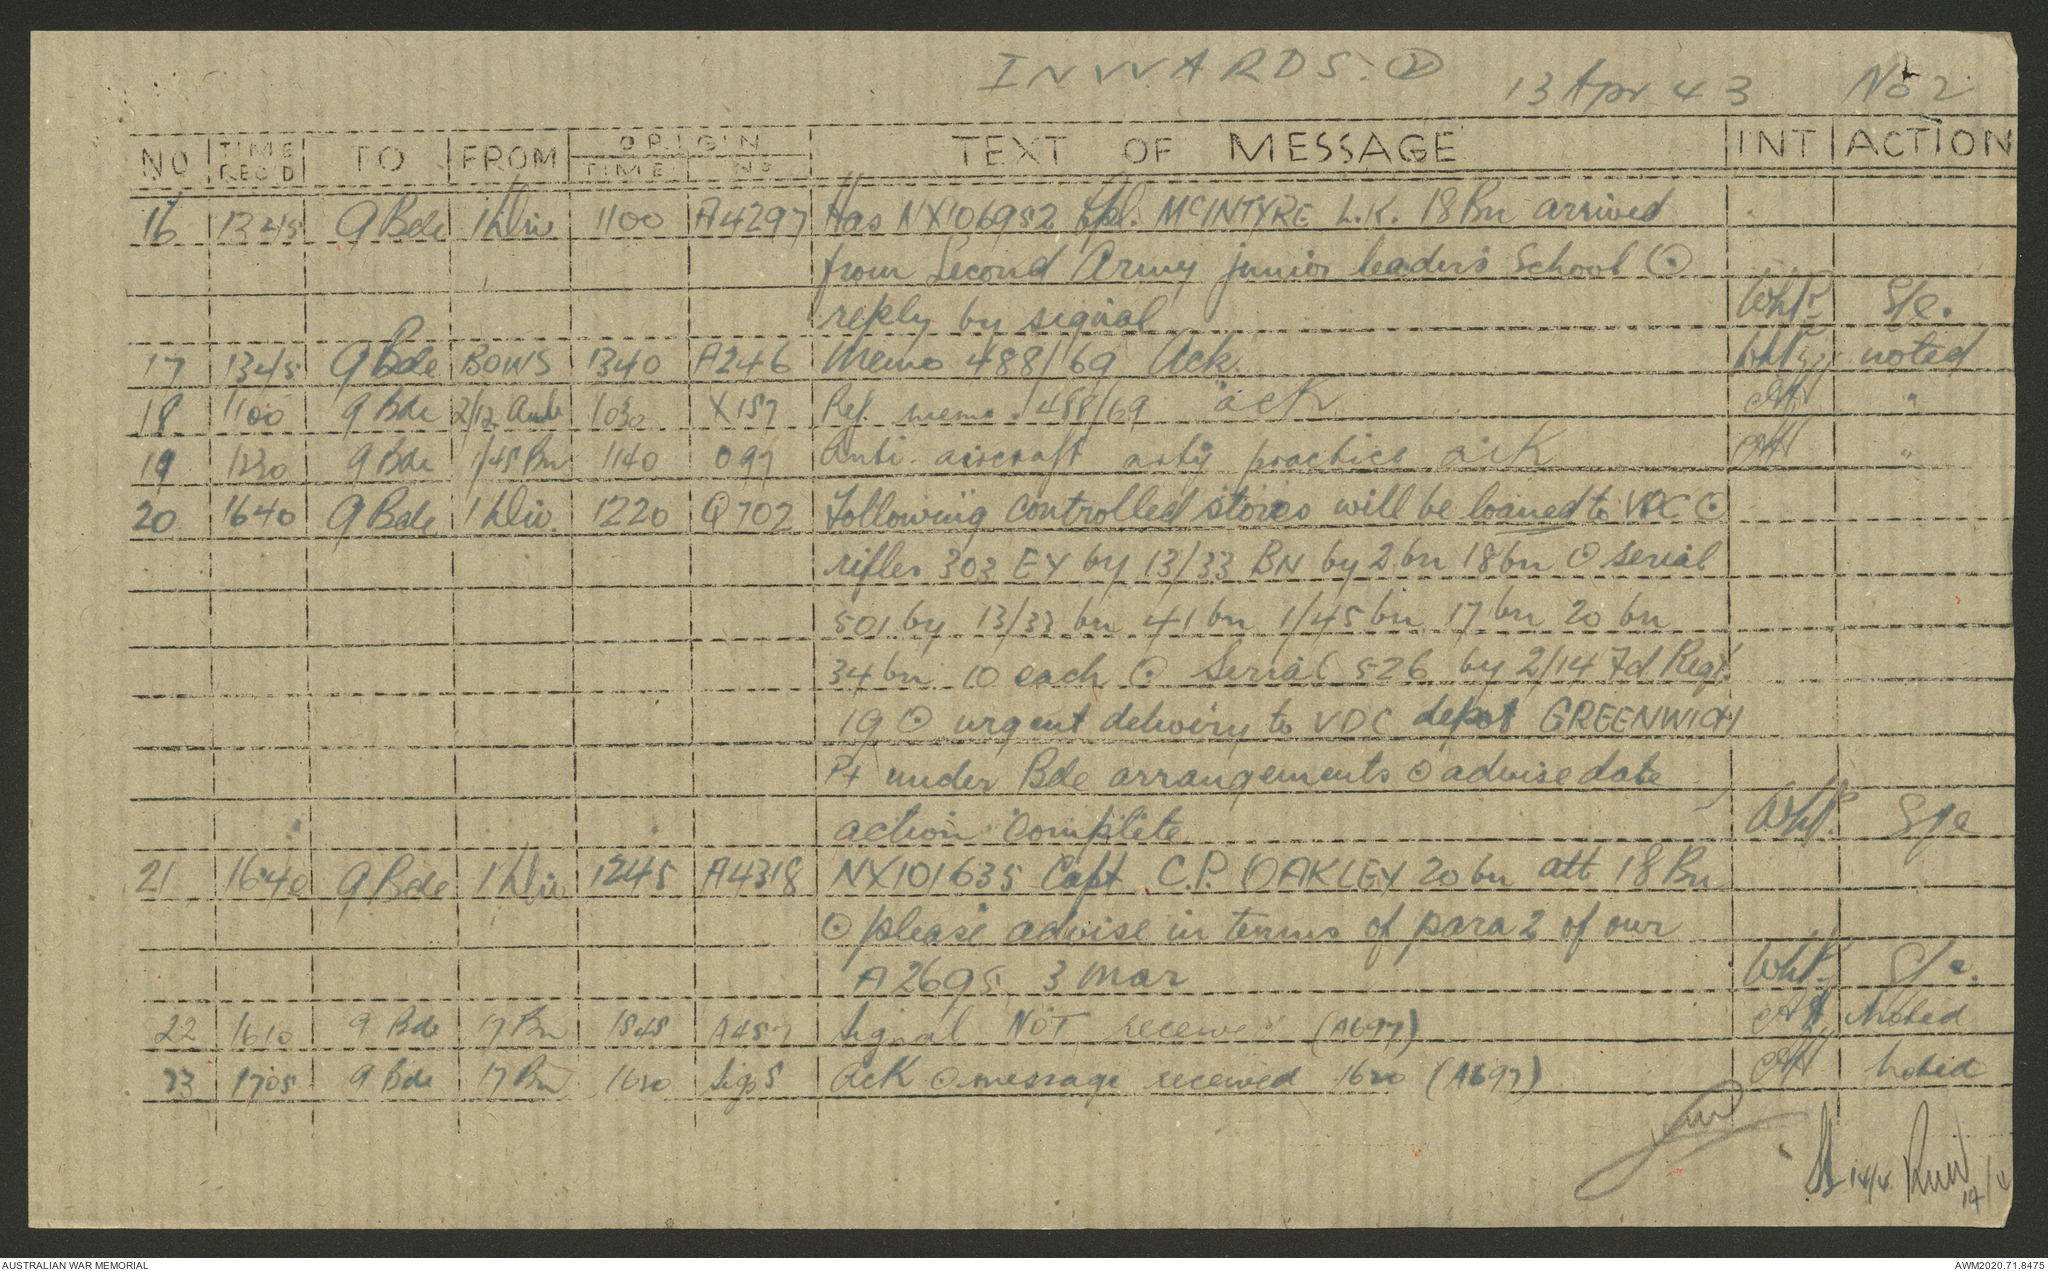 INWARDS. ②
13 Apr 43 No 2
NO TIME REC'D TO FROM ORIGIN TIME NO TEXT OF MESSAGE INT ACTION
16 1345 9 Bde 1 Div 1100 A4297 Has NX106952 Cpl. McINTYRE L.K. 18 Bn arrived
from Second Army junior leaders School ⊙
reply by signal WhP. S/c.
17 1345 9 Bde BOWS 1340 A246 Memo 488/69 Ack. noted
18 1100 9 Bde 2/12 Amb 1030 X157 Ref. memo 488/69 ack "
19 1230 9 Bde 1/45 Bn 1140 097 Anti-aircraft arty practice ack "
20 1640 9 Bde 1 Div. 1220 Q702 Following controlled stores will be loaned to VDC ⊙
rifles 303 EY by 13/33 BN by 2 bn 18 bn ⊙ serial
501 by 13/33 bn 41 bn 1/45 bn 17 bn 20 bn
34 bn 10 each ⊙ Serial 526 by 2/14 Fd Regt
19 ⊙ urgent delivery to VDC depot GREENWICH
Pt under Bde arrangements ⊙ advise date
action complete WhP. S/c
21 1640 9 Bde 1 Div 1245 A4318 NX101635 Capt C.P. OAKLEY 20 bn att 18 Bn
⊙ please advise in terms of para 2 of our
A2695 3 Mar WhP. S/c.
22 1610 9 Bde 17 Bn 1545 A457 Signal NOT received (A697) Noted
23 1705 9 Bde 17 Bn 1620 Sigs 5 Ack ⊙ message received 1620 (A697) Noted
14/4 14/4
AUSTRALIAN WAR MEMORIAL AWM2020.71.8475